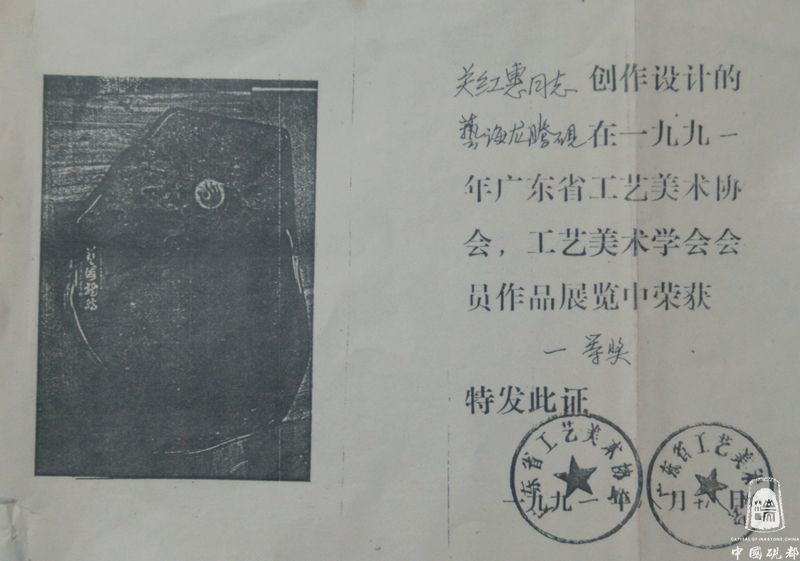 关红惠同志 创作设计的
藝海龙腾砚在一九九一
年广东省工艺美术协
会，工艺美术学会会
员作品展览中荣获
一等奖
特发此证
广东省工艺美术协
广东省工艺美术
一九九一年 月十八日
CAPITAL OF INKSTONE, CHINA
中国砚都